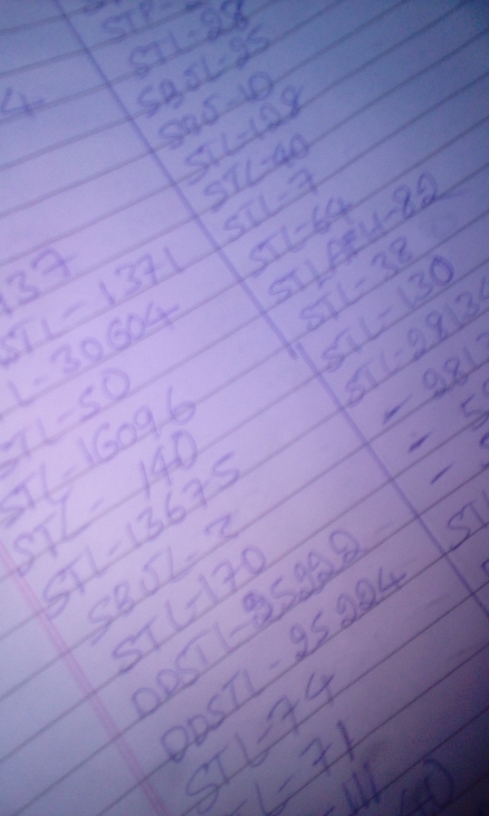 4
137
STL-1371
L-30604
STL-50
STL-16096
STL- 140
STL-13675
SBJL-2
STL-170
DDSTL-25222
DDSTL-25224
STL-74
L-71
STL-28
SBJL-25
SBJ-10
STL-128
STL-40
STL-7
STL-64
STLAFU-82
STL-38
STL-130
STL-28134
- 281
- 5
-
STL